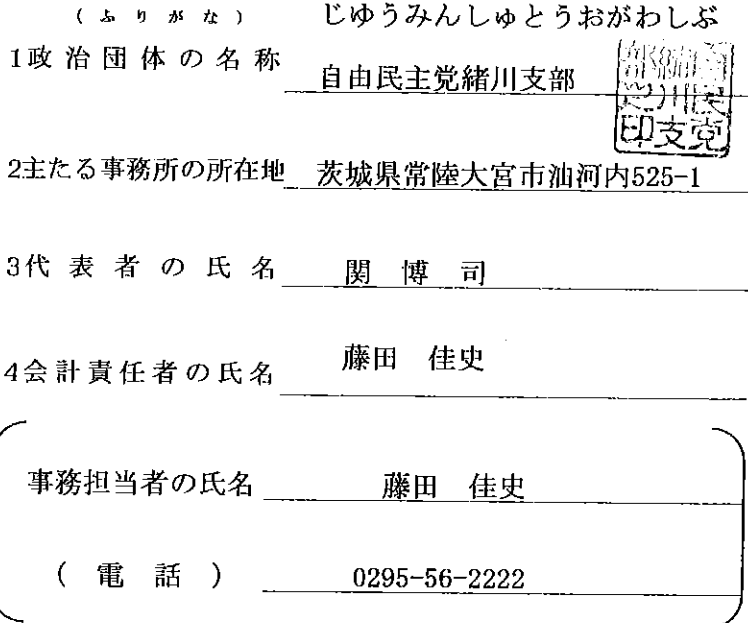 (ふりがな) じゆうみんしゅとうおがわしぶ
1政治団体の名称 自由民主党緒川支部
2主たる事務所の所在地 茨城県常陸大宮市油河内525-1
3代表者の氏名 関 博 司
4会計責任者の氏名 藤田 佳史
事務担当者の氏名 藤田 佳史
(電話) 0295-56-2222